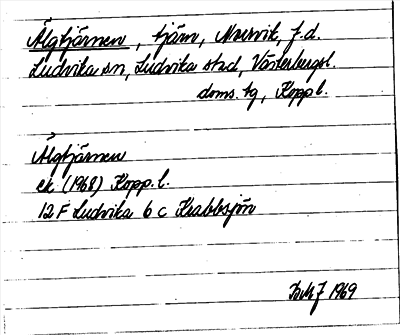 Älgtjärnen, tjärn, Norsvik, f.d.
Ludvika sn, Ludvika stad, Västerbergsl.
doms.tg, Kopp l.
Älgtjärnen
ek. (1968) Kopp. l.
12 F Ludvika 6 c Krabbsjön
1969